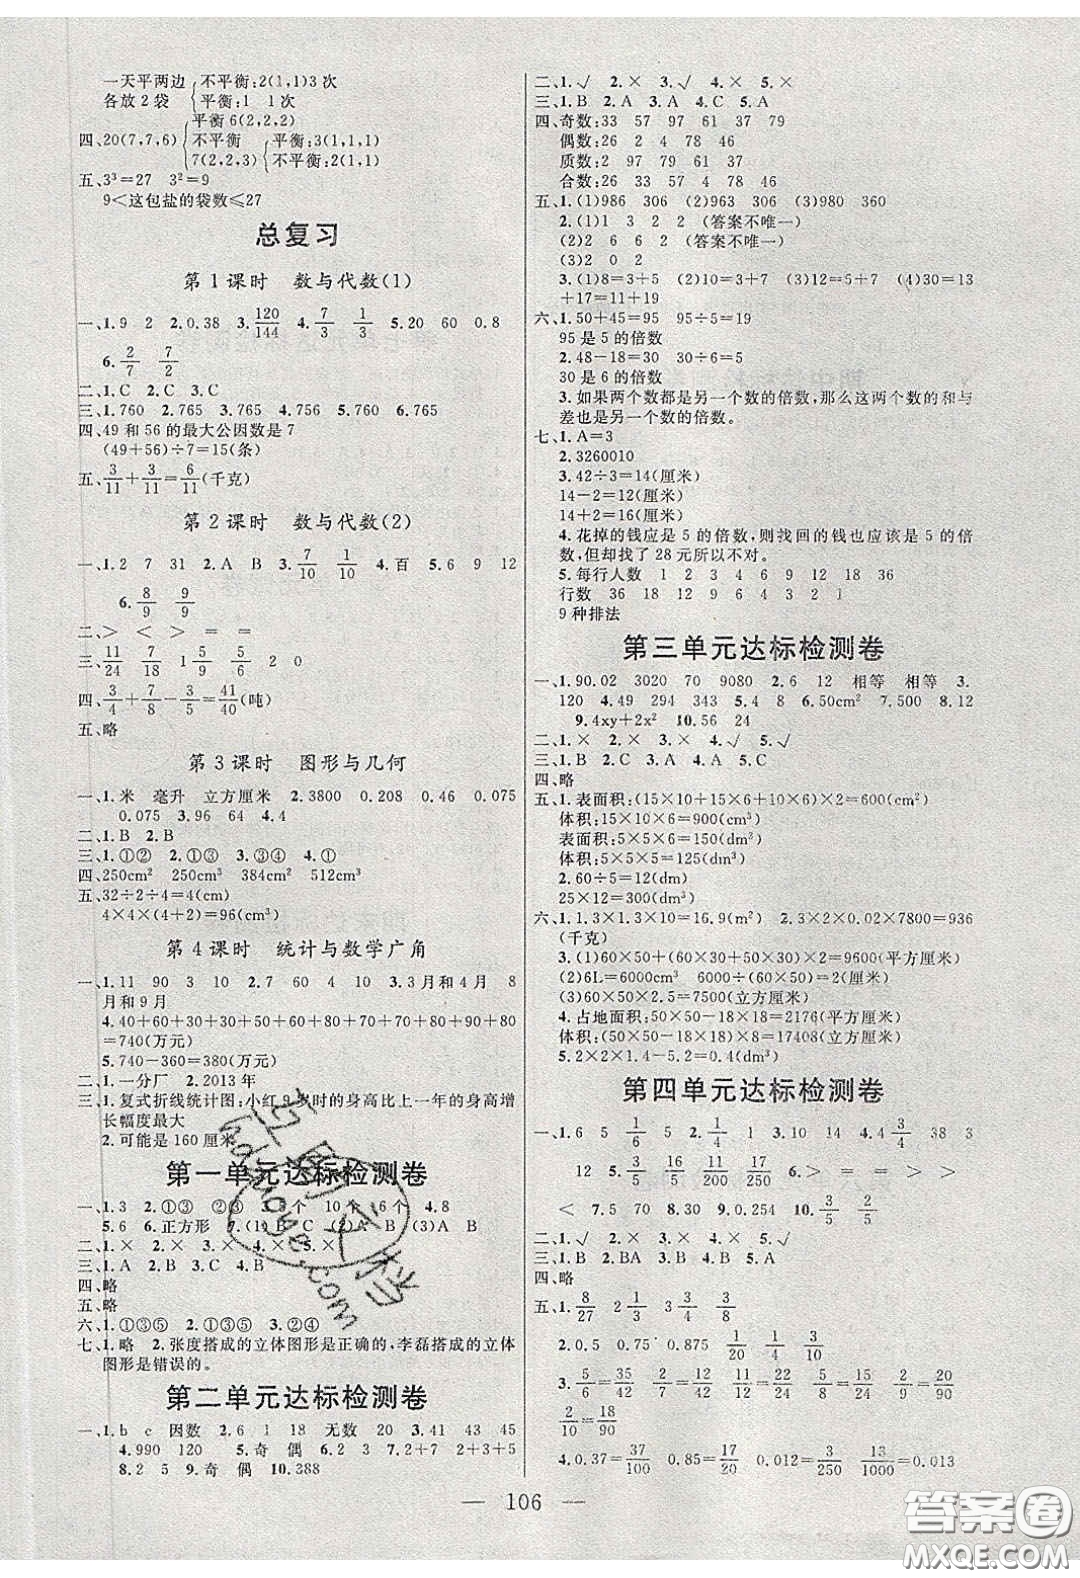 一天平两边 不平衡:2(1,1)3次
各放2袋 平衡:1 1次
平衡6(2,2,2)
四、20(7,7,6) 不平衡 平衡:(1,1,1)
7(2,2,3) 不平衡:3(1,1,1)
五、3³=27 3²=9
9<这包盐的袋数≤27
总复习
第1课时 数与代数(1)
一、1.9 2 2.0.38 3.120/144 4.7/3 1/3 5.20 60 0.8
6.2/7 7/2
二、1.C 2.C 3.C
三、1.760 2.765 3.765 4.756 5.760 6.765
四、49和56的最大公因数是7
(49+56)÷7=15(条)
五、3/11+3/11=6/11(千克)
第2课时 数与代数(2)
一、1.2 7 31 2.A B 3.7/10 1/10 4.百 5.6 9 12
6.8/9 9/9
二、> < = <
三、11/24 7/18 1 5/9 5/6 2 0
四、3/4+7/8-3/5=41/40(吨)
五、略
第3课时 图形与几何
一、1.米 毫升 立方厘米 2.3800 0.208 0.46 0.075
0.075 3.96 64 4.4
二、1.B 2.B
三、1.①② 2.①③ 3.①③ 4.①
四、250cm² 250cm³ 384cm² 512cm³
五、32÷2÷4=4(cm)
4×4×(4+2)=96(cm³)
第4课时 统计与数学广角
一、1.11 90 3 10 2.7 60 4 10 3.3月和4月 8
月和9月
4.40+60+30+30+60+50+60+80+70+90+90+80
=740(万元)
5.740-360=380(万元)
二、1.一分厂 2.2013年
三、1.复式折线统计图;小红9岁时的身高比上一年的身高增
长幅度最大
2.可能是160厘米
第一单元达标检测卷
一、1.3 2.①③ ②③ 3.5个 10个 6个 4.8
5.6 6.正方形 7.(1)B C (2)A B (3)A B
二、1.× 2.× 3.× 4.× 5.×
三、1.A 2.B 3.C 4.B
四、略
五、略
六、1.①③⑤ 2.①③⑤ 3.②④
七、1.略 2.张度搭成的立体图形是正确的,李磊搭成的立体
图形是错误的。
第二单元达标检测卷
一、1.b c 因数 2.6 1 18 无数 20 3.41 43 45
4.990 120 5.奇 偶 6.2 3 7.2+7 2+5 2+3
8.2 5 9.奇 偶 10.388
二、1.√ 2.× 3.√ 4.× 5.×
三、1.B 2.A 3.A 4.C 5.A
四、奇数:33 57 97 61 37 79
偶数:26 2 4 78 46
质数:2 97 61 37 79
合数:26 33 57 4 78 46
五、1.(1)986 306 (2)960 963 306 (3)980 360
2.(1)1 3 2 2 (答案不唯一)
(2)2 6 6 2 (答案不唯一)
(3)2 0 2
3.(1)8=3+5 (2)10=3+7 (3)12=5+7 (4)30=13
+17=11+19
六、1.50+45=95 95÷5=19
95是5的倍数
2.48-18=30 30÷6=5
30是6的倍数
3.如果两个数都是另一个数的倍数,那么这两个数的和与
差也是另一个数的倍数。
七、1.A=3
2.3260010
3.42÷3=14(厘米)
14-2=12(厘米)
14+2=16(厘米)
4.花掉的钱应是5的倍数,则找回的钱也应该是5的倍
数,但却找了28元所以不对。
5.每行人数 1 2 3 4 6 9 12 18 36
行数 36 18 12 9 6 4 3 2 1
9种排法
第三单元达标检测卷
一、1.90.02 3020 70 9080 2.6 12 相等 相等 3.
120 4.49 294 343 5.4 8 6.50cm² 7.500 8.12
9.4xy+2x² 10.56 24
二、1.× 2.× 3.× 4.√ 5.√
三、1.B 2.C 3.A 4.A 5.C
四、略
五、1.表面积:(15×10+15×6+10×6)×2=600(cm²)
体积:15×10×6=900(cm³)
表面积:5×5×6=150(dm²)
体积:5×5×5=125(dm³)
2.60÷5=12(dm)
25×12=300(dm³)
六、1.1.3×1.3×10=16.9(m²) 2.3×2×0.02×7800=936
(千克)
3.(1)60×50+(60×30+50×30)×2=9600(平方厘米)
(2)6L=6000cm³ 6000÷(60×50)=2(厘米)
(3)60×50×2.5=7500(立方厘米)
4.占地面积:50×50-18×18=2176(平方厘米)
体积:(50×50-18×18)×8=17408(立方厘米)
5.2×2×0.6-2=0.4(dm³)
第四单元达标检测卷
一、1.6 5 1/6 5 2.1/4 1 3.10 14 4.4 3/4 38 3
12 5.5/6 5/8 11/200 117/250 6.> = = > >
< 7.5 70 8.30 9.0.254 10.3/5 2/5
二、1.√ 2.× 3.× 4.× 5.√
三、1.B 2.BA 3.B 4.A 5.C
四、略
五、1.8/27 2 1/2 3 3/4 3/8
2.0.5 0.75 0.875 1/20 3/4 4/5
3.5/6=35/42 20/42 4/24 5/8=15/24 2/9=20/90
2/10=18/90
4.0.37=37/100 0.012=3/250 11/1000=0.013
106
答案圈
MXQE.COM